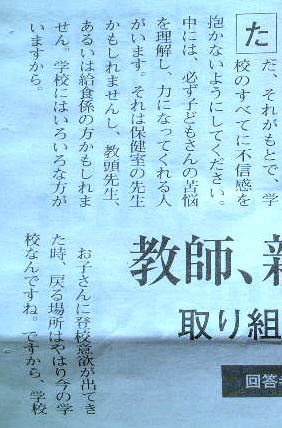 ただ、それがもとで、学
校のすべてに不信感を
抱かないようにしてください。
中には、必ず子どもさんの苦悩
を理解し、力になってくれる人
がいます。それは保健室の先生
かもしれませんし、教頭先生、
あるいは給食係の方かもしれま
せん。学校にはいろいろな方が
いますから。
教師、新
取り組
回答者
お子さんに登校意欲が出てき
た時、戻る場所はやはり今の学
校なんですね。ですから、学校